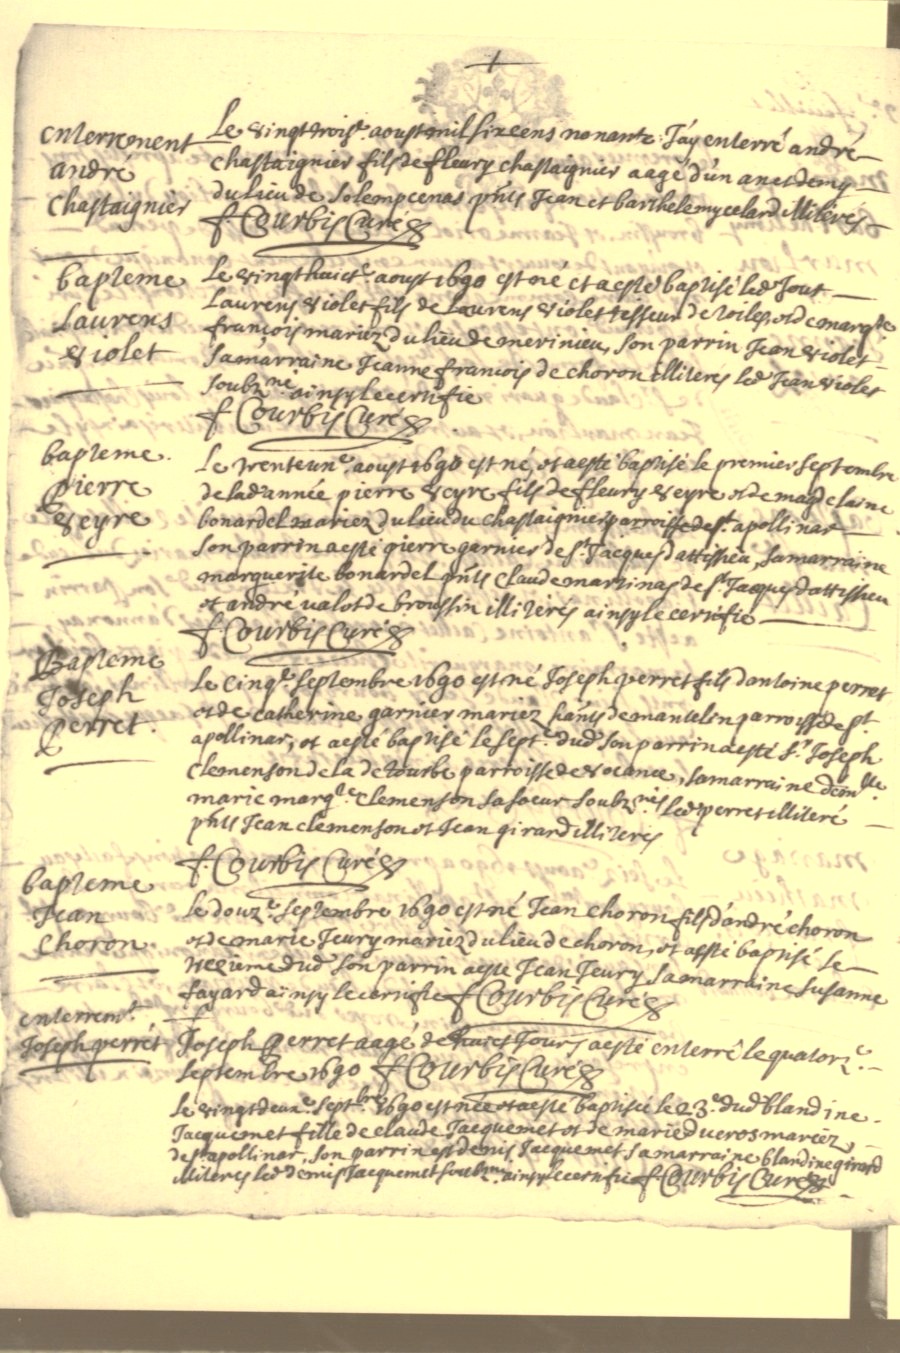 enterrement
andré
Chastaignier
Le vingt trois.e aoust mil six cens nonante J'ay enterré andré
chastaignier fils de fleury chastaignier aagé d'un an et demy
du lieu de Solempcenas pnts Jean et barthelemy celard illiterés
f Courbis Curé
bapteme
Laurens
violet
Le vingthuict.e aoust 1690 est né et a esté baptisé led Jour
Laurens violet fils de Laurens violet tisseur de toiles, et de marg.te
françois mariez du lieu de merinieu, son parrin Jean violet
sa marraine Jeanne francois de choron illiteres led Jean violet
soubz.né ainsy le certifie
f Courbis Curé
bapteme
Pierre
veyre
Le trenteun.e aoust 1690 est né, et a esté baptisé le premier septembre
de lad année pierre veyre fils de fleury veyre et de magdelaine
bonardel mariez du lieu du chastaignier parroisse de st apollinar
son parrin a esté pierre garnier de st Jacques d'attissieu, sa marraine
marguerite bonardel pnts Claude martinas de st Jacques d'attissieu
et andré valot de broussin illiterés ainsy le certifie
f Courbis Curé
Bapteme
Joseph
Perret
Le cinq.e septembre 1690 est né Joseph perret fils d'antoine perret
et de catherine garnier mariez de mantelin parroisse de st
apollinar, et a esté baptisé le sept.e dud son parrin a esté sr Joseph
clemenson de la detourbe parroisse de vocance, sa marraine dem.lle
marie marg.te clemenson sa soeur soubz.nés led perret illiteré
pnts Jean clemenson et Jean girard illiteres
f. Courbis Curé
bapteme
Jean
Choron
Le douz.e septembre 1690 est né Jean choron fils d'andré choron
et de marie Jeury mariez du lieu de choron, et a esté baptisé le
treziéme dud son parrin a esté Jean Jeury sa marraine Susanne
fayard ainsy le certifie f Courbis Curé
enterrem.t
Joseph perret
Joseph Perret aagé de huict Jours a esté enterré le quatorz.e
septembre 1690 f Courbis Curé
Le vingtdeux.e sept.bre 1690 est née et a esté baptisée le 23.e dud blandine
Jacquemet fille de claude Jacquemet et de marie ducros mariez
de st apollinar, son parrin est denis Jacquemet sa marraine blandine girard
illiteres led denis Jacquemet soubz.né ainsy le certifie f Courbis Curé